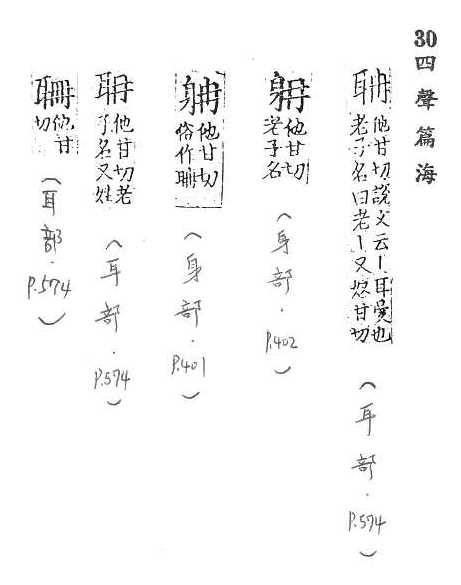 30四聲篇海
耼他甘切說文云丨耳曼也
老子名曰老丨又怒甘切
(耳部.P.574)
他甘切
老子名
(身部.P.402)
他甘切
俗作
(身部.P.401)
他甘切老
子名又姓
(耳部.P.574)
他甘
切
(耳部.P.574)